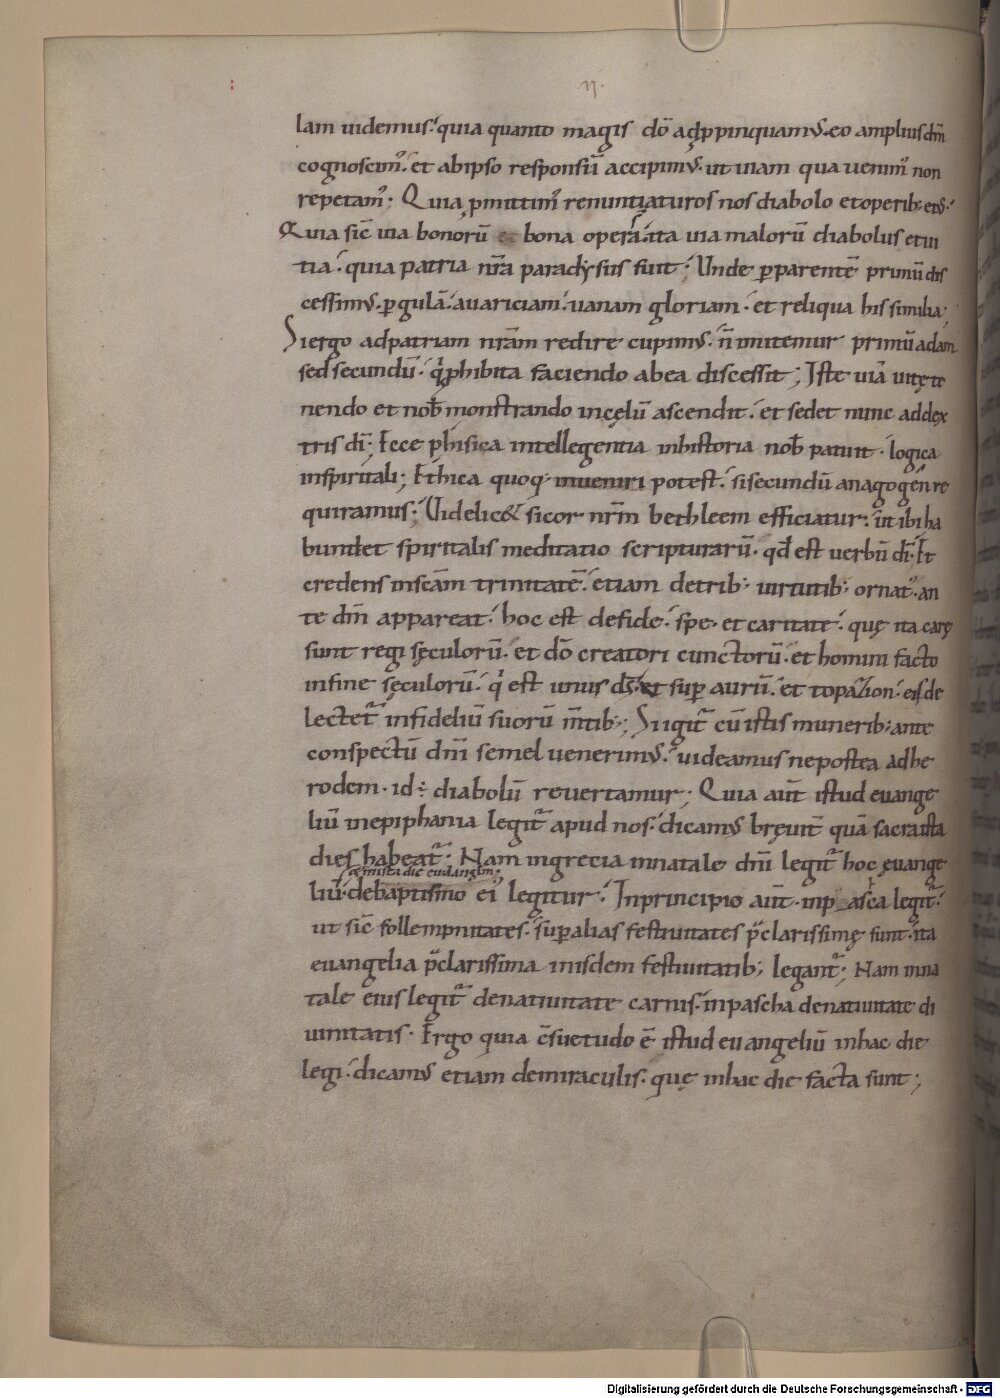 ·II·
lam uidemus·́ quia quanto magis dō adꝓpinquamꝰ· eo amplius dn̄m
cognoscimꝰ· et abipso responsū accipimꝰ· ut uiam qua uenimꝰ non
repetamꝰ· Quia ꝓmittimꝰ renuntiaturos nos diabolo et operib; eiꝰ·
Quia sic̄ uia bonorū bona opera·́ ita uia malorū diabolus et ui
tia·́ quia patria nr̄a paradẏsus fuit; Unde ꝑ parentē primū dis
cessimꝰ· ꝑ gulā·́ auariciam·́ uanam gloriam· et reliqua his similia;
Si ergo ad patriam nr̄am redire cupimꝰ· n̄ imitemur primū adam
sed secundū· q̇ ꝓhibita faciendo ab ea discessit; Iste uiā uitę te
nendo et nob̄ monstrando in cęlū ascendit·́ et sedet nunc ad dex
tris dī; Ecce phisica intellegentia in historia nob̄ patuit· logica
in spiritali; Ethica quoq· inueniri potest·́ si secundū anagogēn re
quiramus·́ Uidelic& si cor nr̄m bethleem efficiatur·́ ut ibi ha
bundet spiritalis meditatio scripturarū· qd̄ est uerbū dī· Et
credens in scām trinitatē·́ etiam de trib; uirtutib; ornatꝰ· an
te dn̄i appareat·́ hoc est de fide·́ spe· et caritate·́ quę ita carę
sunt regi sęculorū· et dō creatori cunctorū· et homini facto
in fine sęculorū·́ q̇ est unus dꝰ́· et suꝑ aurū·́ et topazion· eis de
lectet᷑ in fideliū suorū m̄tib;; Si igit᷑ cū istis munerib; ante
conspectū dn̄i semel uenerimꝰ·́ uideamus ne postea ad he
rodem· id ÷ diabolū reuertamur; Quia aūt istud euange
liū in epiphania legit᷑ apud nos·́ dicamꝰ breuit̄ quā sacra ista
dies habeat᷑; Nam in grecia in natale dn̄i legit᷑ hoc ęuange
liū·́ de baptismo ei legitur·́ In principio aūt· in pasca legit᷑·́
ut sic̄ sollempnitates·́ suꝑ alias festiuitates p̄clarissimę sunt·́ ita
euangelia p̄clarissima in isdem festiuitatib; legant᷑; Nam in na
tale eius legit᷑ de natiuitate carnis·́ in pascha de natiuitate di
uinitatis· Ergo quia c̄suetudo ē istud euangeliū in hac die
legi·́ dicamꝰ etiam de miraculis· quę in hac die facta sunt;
Digitalisierung gefördert durch die Deutsche Forschungsgemeinschaft - DFG